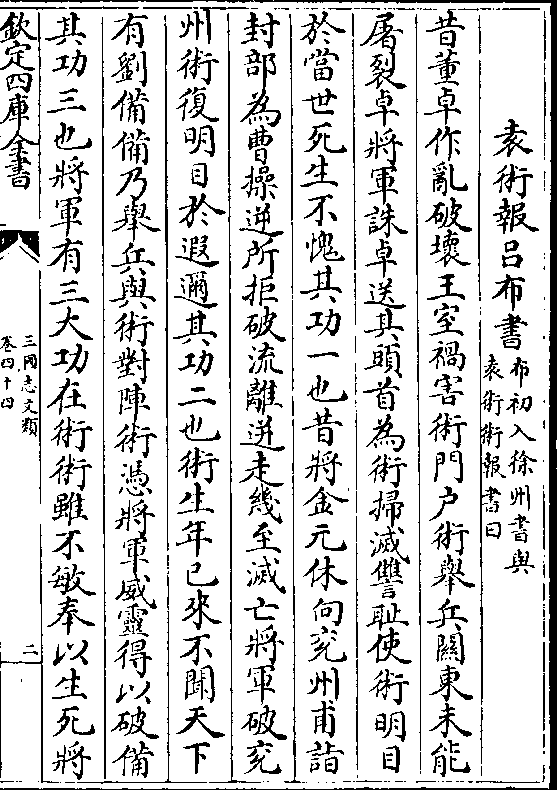 袁術報吕布書布初入徐州書與
袁術術報書曰
昔董卓作亂破壞王室禍害術門户術舉兵關東未能
屠裂卓將軍誅卓送其頭首為術掃滅讐恥使術明目
於當世死生不愧其功一也昔將金元休向兖州甫詣
封部為曹操逆所拒破流離迸走幾至滅亡將軍破兖
州術復明目於遐邇其功二也術生年已來不聞天下
有劉備備乃舉兵與術對陣術憑將軍威靈得以破備
其功三也將軍有三大功在術術雖不敏奉以生死將
欽定四庫全書
三國志文類
卷四十四
二